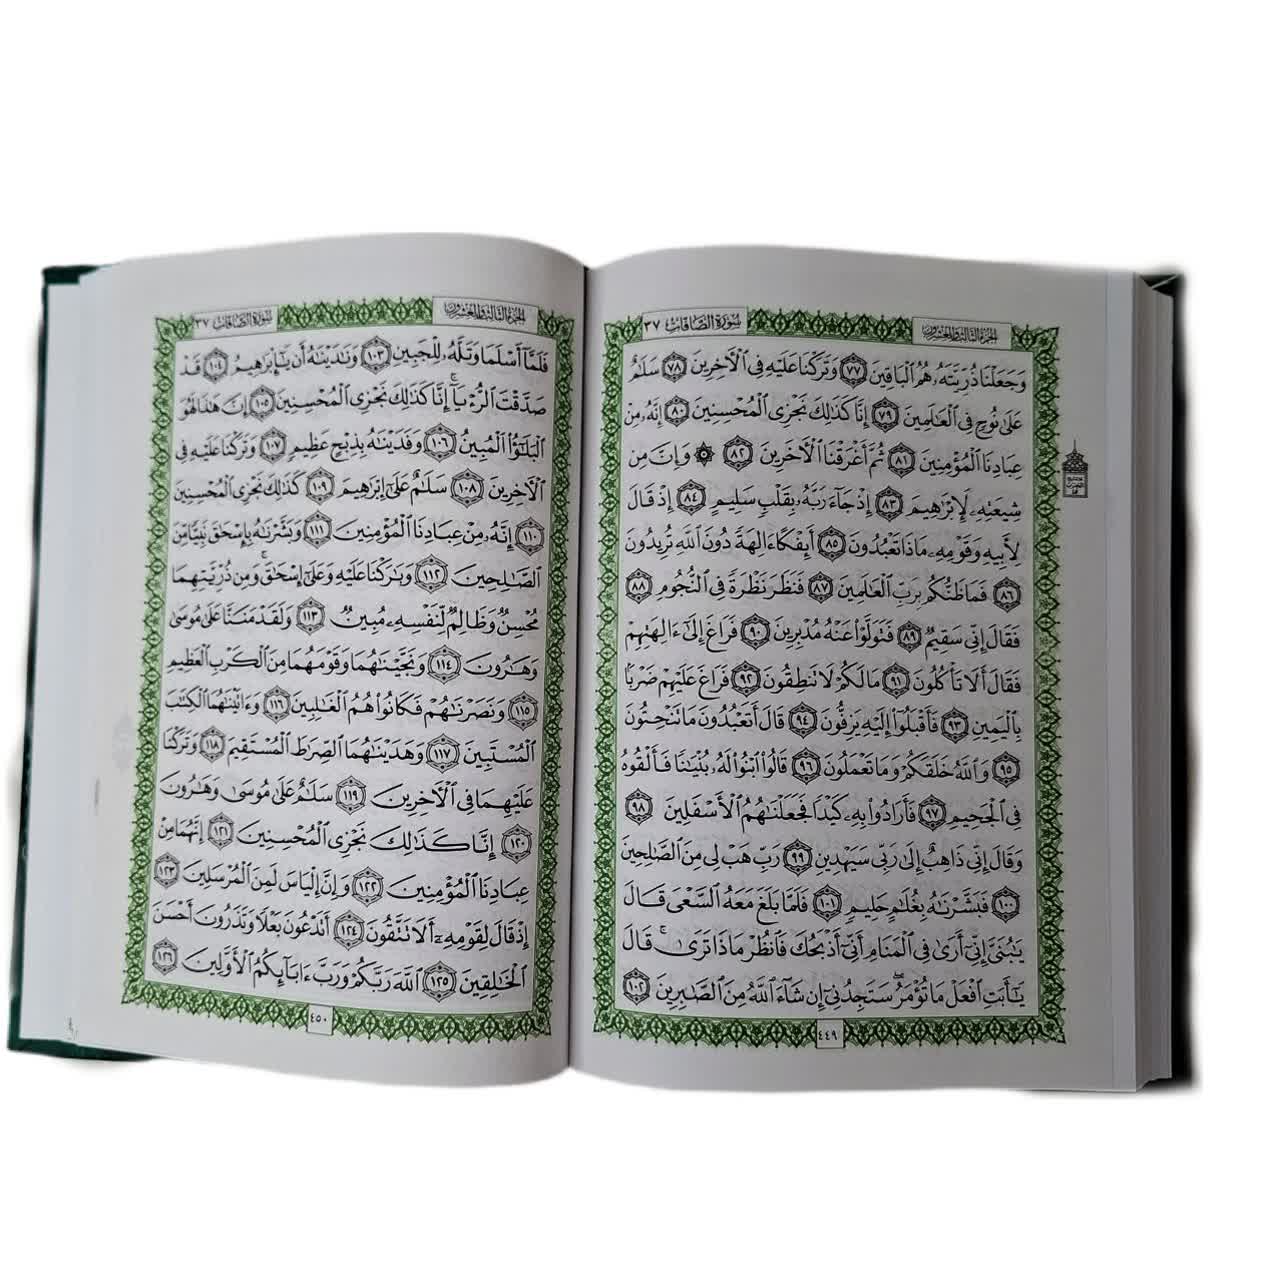 الجزء الثالث والعشرون
سورة الصافات ٣٧
وَجَعَلْنَا ذُرِّيَّتَهُۥ هُمُ ٱلْبَاقِينَ ٧٧ وَتَرَكْنَا عَلَيْهِ فِى ٱلْأَخِرِينَ ٧٨ سَلَٰمٌ
عَلَىٰ نُوحٍ فِى ٱلْعَٰلَمِينَ ٧٩ إِنَّا كَذَٰلِكَ نَجْزِى ٱلْمُحْسِنِينَ ٨٠ إِنَّهُۥ مِنْ
عِبَادِنَا ٱلْمُؤْمِنِينَ ٨١ ثُمَّ أَغْرَقْنَا ٱلْأَخَرِينَ ٨٢ ۞ وَإِنَّ مِن
شِيعَتِهِۦ لَإِبْرَٰهِيمَ ٨٣ إِذْ جَآءَ رَبَّهُۥ بِقَلْبٍ سَلِيمٍ ٨٤ إِذْ قَالَ
لِأَبِيهِ وَقَوْمِهِۦ مَاذَا تَعْبُدُونَ ٨٥ أَئِفْكًا ءَالِهَةً دُونَ ٱللَّهِ تُرِيدُونَ
٨٦ فَمَا ظَنُّكُم بِرَبِّ ٱلْعَٰلَمِينَ ٨٧ فَنَظَرَ نَظْرَةً فِى ٱلنُّجُومِ ٨٨
فَقَالَ إِنِّى سَقِيمٌ ٨٩ فَتَوَلَّوْا۟ عَنْهُ مُدْبِرِينَ ٩٠ فَرَاغَ إِلَىٰٓ ءَالِهَتِهِمْ
فَقَالَ أَلَا تَأْكُلُونَ ٩١ مَا لَكُمْ لَا تَنطِقُونَ ٩٢ فَرَاغَ عَلَيْهِمْ ضَرْبًۢا
بِٱلْيَمِينِ ٩٣ فَأَقْبَلُوٓا۟ إِلَيْهِ يَزِفُّونَ ٩٤ قَالَ أَتَعْبُدُونَ مَا تَنْحِتُونَ
٩٥ وَٱللَّهُ خَلَقَكُمْ وَمَا تَعْمَلُونَ ٩٦ قَالُوا۟ ٱبْنُوا۟ لَهُۥ بُنْيَٰنًا فَأَلْقُوهُ
فِى ٱلْجَحِيمِ ٩٧ فَأَرَادُوا۟ بِهِۦ كَيْدًا فَجَعَلْنَٰهُمُ ٱلْأَسْفَلِينَ ٩٨
وَقَالَ إِنِّى ذَاهِبٌ إِلَىٰ رَبِّى سَيَهْدِينِ ٩٩ رَبِّ هَبْ لِى مِنَ ٱلصَّٰلِحِينَ
١٠٠ فَبَشَّرْنَٰهُ بِغُلَٰمٍ حَلِيمٍ ١٠١ فَلَمَّا بَلَغَ مَعَهُ ٱلسَّعْىَ قَالَ
يَٰبُنَىَّ إِنِّىٓ أَرَىٰ فِى ٱلْمَنَامِ أَنِّىٓ أَذْبَحُكَ فَٱنظُرْ مَاذَا تَرَىٰ ۚ قَالَ
يَٰٓأَبَتِ ٱفْعَلْ مَا تُؤْمَرُ ۖ سَتَجِدُنِىٓ إِن شَآءَ ٱللَّهُ مِنَ ٱلصَّٰبِرِينَ ١٠٢
٤٤٩
الجزء الثالث والعشرون
سورة الصافات ٣٧
فَلَمَّآ أَسْلَمَا وَتَلَّهُۥ لِلْجَبِينِ ١٠٣ وَنَٰدَيْنَٰهُ أَن يَٰٓإِبْرَٰهِيمُ ١٠٤ قَدْ
صَدَّقْتَ ٱلرُّءْيَآ ۚ إِنَّا كَذَٰلِكَ نَجْزِى ٱلْمُحْسِنِينَ ١٠٥ إِنَّ هَٰذَا لَهُوَ
ٱلْبَلَٰٓؤُا۟ ٱلْمُبِينُ ١٠٦ وَفَدَيْنَٰهُ بِذِبْحٍ عَظِيمٍ ١٠٧ وَتَرَكْنَا عَلَيْهِ فِى
ٱلْأَخِرِينَ ١٠٨ سَلَٰمٌ عَلَىٰٓ إِبْرَٰهِيمَ ١٠٩ كَذَٰلِكَ نَجْزِى ٱلْمُحْسِنِينَ
١١٠ إِنَّهُۥ مِنْ عِبَادِنَا ٱلْمُؤْمِنِينَ ١١١ وَبَشَّرْنَٰهُ بِإِسْحَٰقَ نَبِيًّا مِّنَ
ٱلصَّٰلِحِينَ ١١٢ وَبَٰرَكْنَا عَلَيْهِ وَعَلَىٰٓ إِسْحَٰقَ ۚ وَمِن ذُرِّيَّتِهِمَا
مُحْسِنٌ وَظَالِمٌ لِّنَفْسِهِۦ مُبِينٌ ١١٣ وَلَقَدْ مَنَنَّا عَلَىٰ مُوسَىٰ
وَهَٰرُونَ ١١٤ وَنَجَّيْنَٰهُمَا وَقَوْمَهُمَا مِنَ ٱلْكَرْبِ ٱلْعَظِيمِ
١١٥ وَنَصَرْنَٰهُمْ فَكَانُوا۟ هُمُ ٱلْغَٰلِبِينَ ١١٦ وَءَاتَيْنَٰهُمَا ٱلْكِتَٰبَ
ٱلْمُسْتَبِينَ ١١٧ وَهَدَيْنَٰهُمَا ٱلصِّرَٰطَ ٱلْمُسْتَقِيمَ ١١٨ وَتَرَكْنَا
عَلَيْهِمَا فِى ٱلْأَخِرِينَ ١١٩ سَلَٰمٌ عَلَىٰ مُوسَىٰ وَهَٰرُونَ
١٢٠ إِنَّا كَذَٰلِكَ نَجْزِى ٱلْمُحْسِنِينَ ١٢١ إِنَّهُمَا مِنْ
عِبَادِنَا ٱلْمُؤْمِنِينَ ١٢٢ وَإِنَّ إِلْيَاسَ لَمِنَ ٱلْمُرْسَلِينَ ١٢٣
إِذْ قَالَ لِقَوْمِهِۦٓ أَلَا تَتَّقُونَ ١٢٤ أَتَدْعُونَ بَعْلًا وَتَذَرُونَ أَحْسَنَ
ٱلْخَٰلِقِينَ ١٢٥ ٱللَّهَ رَبَّكُمْ وَرَبَّ ءَابَآئِكُمُ ٱلْأَوَّلِينَ ١٢٦
٤٥٠